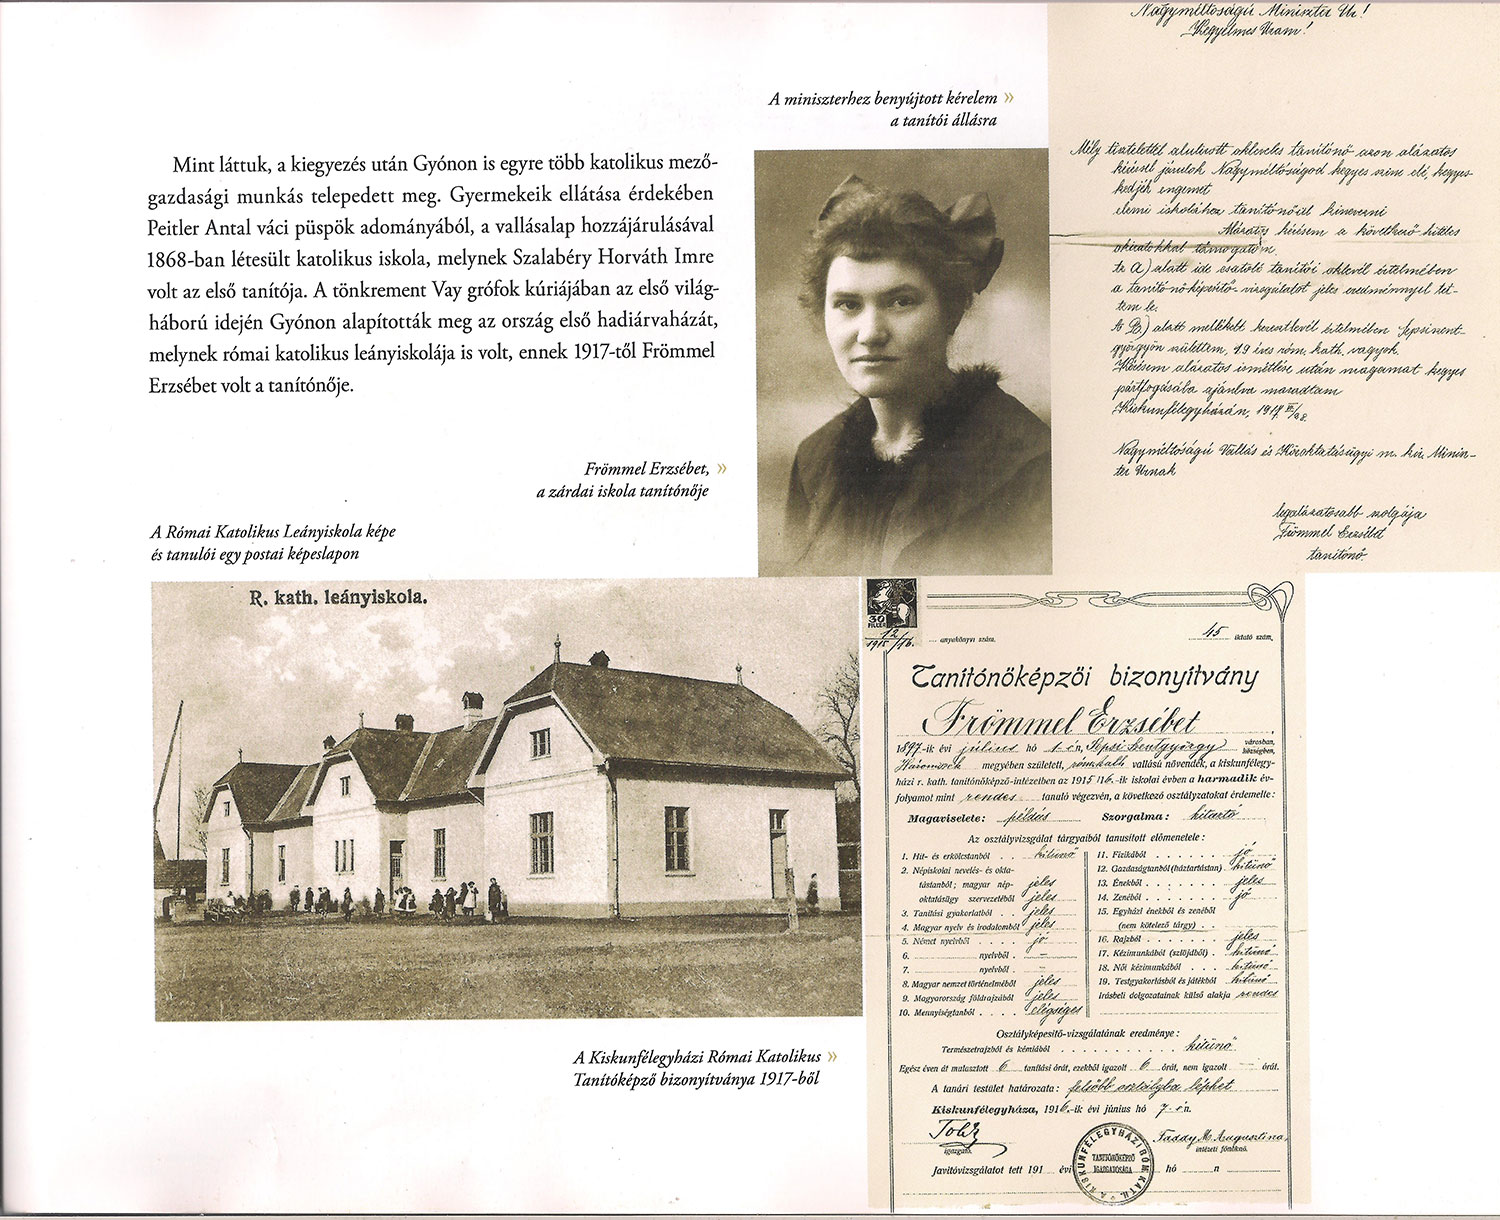 Mint láttuk, a kiegyezés után Gyónon is egyre több katolikus mező-
gazdasági munkás telepedett meg. Gyermekeik ellátása érdekében
Peitler Antal váci püspök adományából, a vallásalap hozzájárulásával
1868-ban létesült katolikus iskola, melynek Szalabéry Horváth Imre
volt az első tanítója. A tönkrement Vay grófok kúriájában az első világ-
háború idején Gyónon alapították meg az ország első hadiárvaházát,
melynek római katolikus leányiskolája is volt, ennek 1917-től Frömmel
Erzsébet volt a tanítónője.
A miniszterhez benyújtott kérelem »
a tanítói állásra
Frömmel Erzsébet, »
a zárdai iskola tanítónője
A Római Katolikus Leányiskola képe
és tanulói egy postai képeslapon
R. kath. leányiskola.
A Kiskunfélegyházi Római Katolikus »
Tanítóképző bizonyítványa 1917-ből
Nagyméltóságú Miniszter Úr!
Kegyelmes Uram!
Mély tisztelettel alulirott okleveles tanítónő azon alázatos
kéréssel járulok Nagyméltóságod kegyes színe elé, kegyes-
kedjék engemet
elemi iskolához tanítónőül kinevezni
Alázatos kérésem a következő hiteles
okiratokkal támogatom.
te A) alatt ide csatolt tanítói oklevél értelmében
a tanítónőképesítő-vizsgálatot jeles eredménnyel tet-
tem le.
A B) alatt mellékelt keresztlevél értelmében Sepsiszent-
györgyön születtem, 19 éves róm. kath. vagyok.
Kérésem alázatos ismétlése után magamat kegyes
pártfogásába ajánlva maradtam
Kiskunfélegyházán, 1917
Nagyméltóságú Vallás és Közoktatásügyi m. kir. Minisz-
ter Úrnak
legalázatosabb szolgája
Frömmel Erzsébet
tanítónő.
30
FILLÉR
12
1915/16.
anyakönyvi szám.
45 iktató szám.
Tanítónőképzői bizonyítvány
Frömmel Erzsébet
1897-ik évi július hó 1-én, Sepsi Szentgyörgy városban, községben,
Háromszék megyében született, róm. kath vallású növendék, a kiskunfélegy-
házi r. kath. tanítónőképző-intézetben az 1915/16.-ik iskolai évben a harmadik év-
folyamot mint rendes tanuló végezvén, a következő osztályzatokat érdemelte:
Magaviselete: példás Szorgalma: kitartó
Az osztályvizsgálat tárgyaiból tanusított előmenetele:
1. Hit- és erkölcstanból . . kitünő
2. Népiskolai nevelés- és okta-
tástanból; magyar nép- jeles
oktatásügy szervezetéből jeles
3. Tanítási gyakorlatból . . jeles
4. Magyar nyelv és irodalomból jeles
5. Német nyelvből . . . . jó
6. nyelvből . –
7. nyelvből . –
8. Magyar nemzet történelméből jeles
9. Magyarország földrajzából jeles
10. Mennyiségtanból . . . . elégséges
11. Fizikából . . . . . . . jó
12. Gazdaságtanból (háztartástan) . kitünő
13. Énekből . . . . . . . jeles
14. Zenéből . . . . . . . jó
15. Egyházi énekből és zenéből
(nem kötelező tárgy) . .
16. Rajzból . . . . . . . jeles
17. Kézimunkából (szlöjdből) . kitünő
18. Női kézimunkából . . . kitünő
19. Testgyakorlásból és játékból kitünő
Irásbeli dolgozatainak külső alakja rendes
Osztályképesítő-vizsgálatának eredménye:
Természetrajzból és kémiából . . . . . . . . . kitünő
Egész éven át mulasztott 6 tanítási órát, ezekből igazolt 6 órát, nem igazolt – órát.
A tanári testület határozata: felsőbb osztályba léphet
Kiskunfélegyháza, 1916.-ik évi június hó 7-én.
igazgató.
Taddy M. Augusztina,
intézeti főnöknő.
Javítóvizsgálatot tett 191 évi hó n
KISKUNFÉLEGYHÁZI RÓM. KATH.
TANÍTÓNŐKÉPZŐ
IGAZGATÓSÁGA